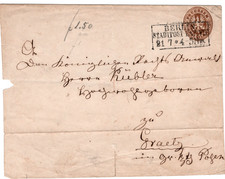 1.50
BERLIN
STADTPOST
21 7
An
den Königlichen Rechts-Anwalt
Herrn Kübler
Hochwohlgeboren
zu
Graetz
im Posen